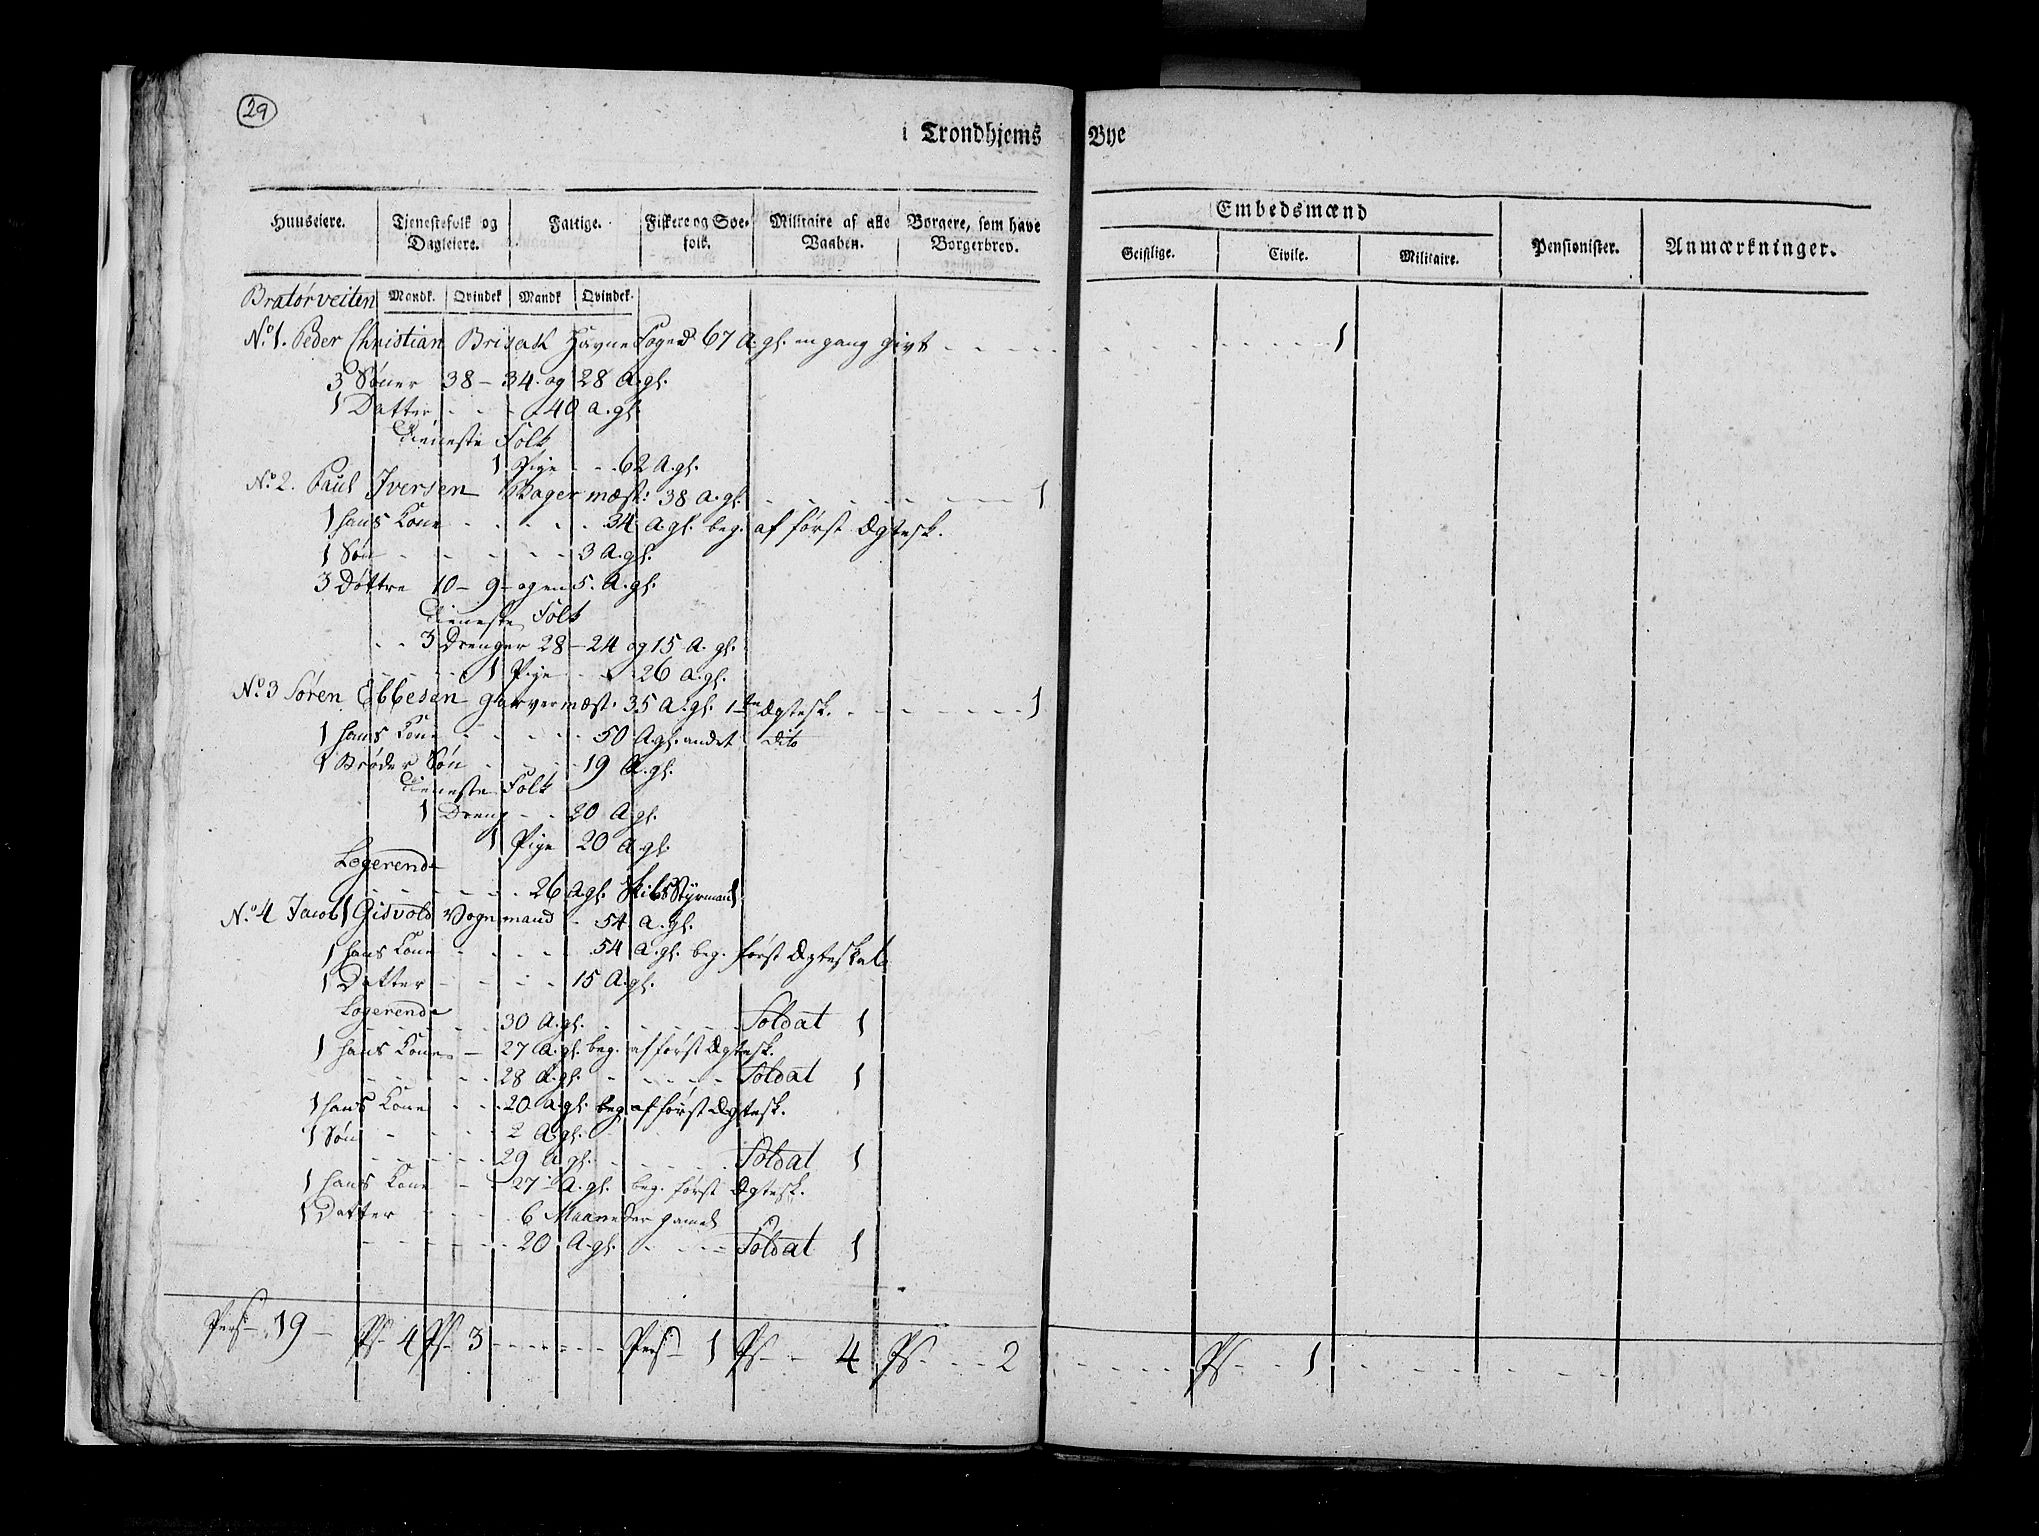 29
i Trondhjems Bye
Huuseiere. Tjenestefolk og Dagleiere. Fattige. Fiskere og Søefolk. Militaire af alle Vaaben. Borgere, som have Borgerbrev. Embedsmænd Geistlige. Civile. Militaire. Pensionister. Anmærkninger.
Bratørveiten Mandk. Qvindek Mandk Qvindek.
No 1. Peder Christian Brisack Havne Foged 67 A. gl. en gang givt - - - - 1
3 Søner 38 - 34. og 28 A. gl.
1 Datter - - - 40 a. gl.
Tieneste Folk
1 Pige - - 62 A. gl.
No 2. Paul Iversen Bager mæst: 38 A. gl. - - - - 1
1 hans Kone - - - - 34 A. gl. beg. af først Ægtesk.
1 Søn - - - - 3 A. gl.
3 Døttre 10 - 9 - og en 5. A. gl.
Tieneste Folk
- - 3 Drenger 28 - 24 og 15 A. gl.
1 Pige - - 26 A. gl.
No 3 Søren Ebbesen Garvermæst. 35 A. gl. 1te Ægtesk. - - - - 1
1 hans Kone - - - - 50 A. gl. andet Dito
1 Broder Søn - - - 19 A. gl.
Tieneste Folk
1 Dreng - - 20 A. gl.
1 Pige 20 A. gl.
Logerende
- - - - 26 A. gl. Skibs Styrmand 1
No 4 Jacob Gisvold Vognmand - 54 a. gl.
1 hans Kone - - - - 54 A. gl. beg. først Ægteskab
1 Datter - - - - 15 A. gl.
Logerende
- - - - 30 A. gl. - - - - Soldat 1
1 hans Kone - 27 A. gl. beg. af først Ægtesk.
- - - - 28 A. gl. - - - - Soldat 1
1 hans Kone - - 20 a. gl. beg. af først Ægtesk.
1 Søn - - - - 2 A. gl.
- - - - 29 A. gl. - - - - Soldat 1
1 hans Kone - - 27 A. gl. beg. først Ægtesk.
1 Datter - - - - 6 Maaneder gamel
- - - - 20 A. gl. - - - - Soldat 1
Pers 19 - Ps - 4 Ps - 3 - - - - Pers - 1 Ps - - 4 Ps - - - 2 - - - - Ps - - 1 - - - -